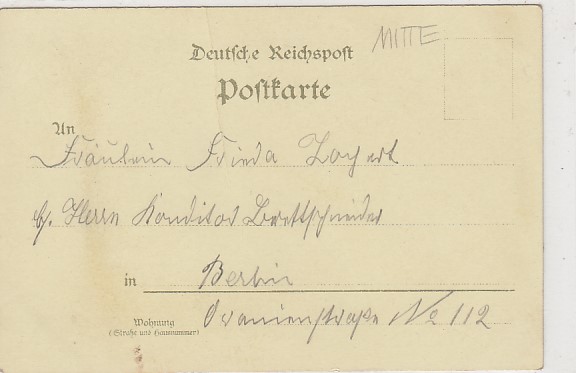 MITTE
Deutsche Reichspost
Postkarte
An
Fräulein Frieda
b/. Herrn Konditor Brettschneider
in Berlin
Wohnung
(Straße und Hausnummer)
Oranienstraße No 112